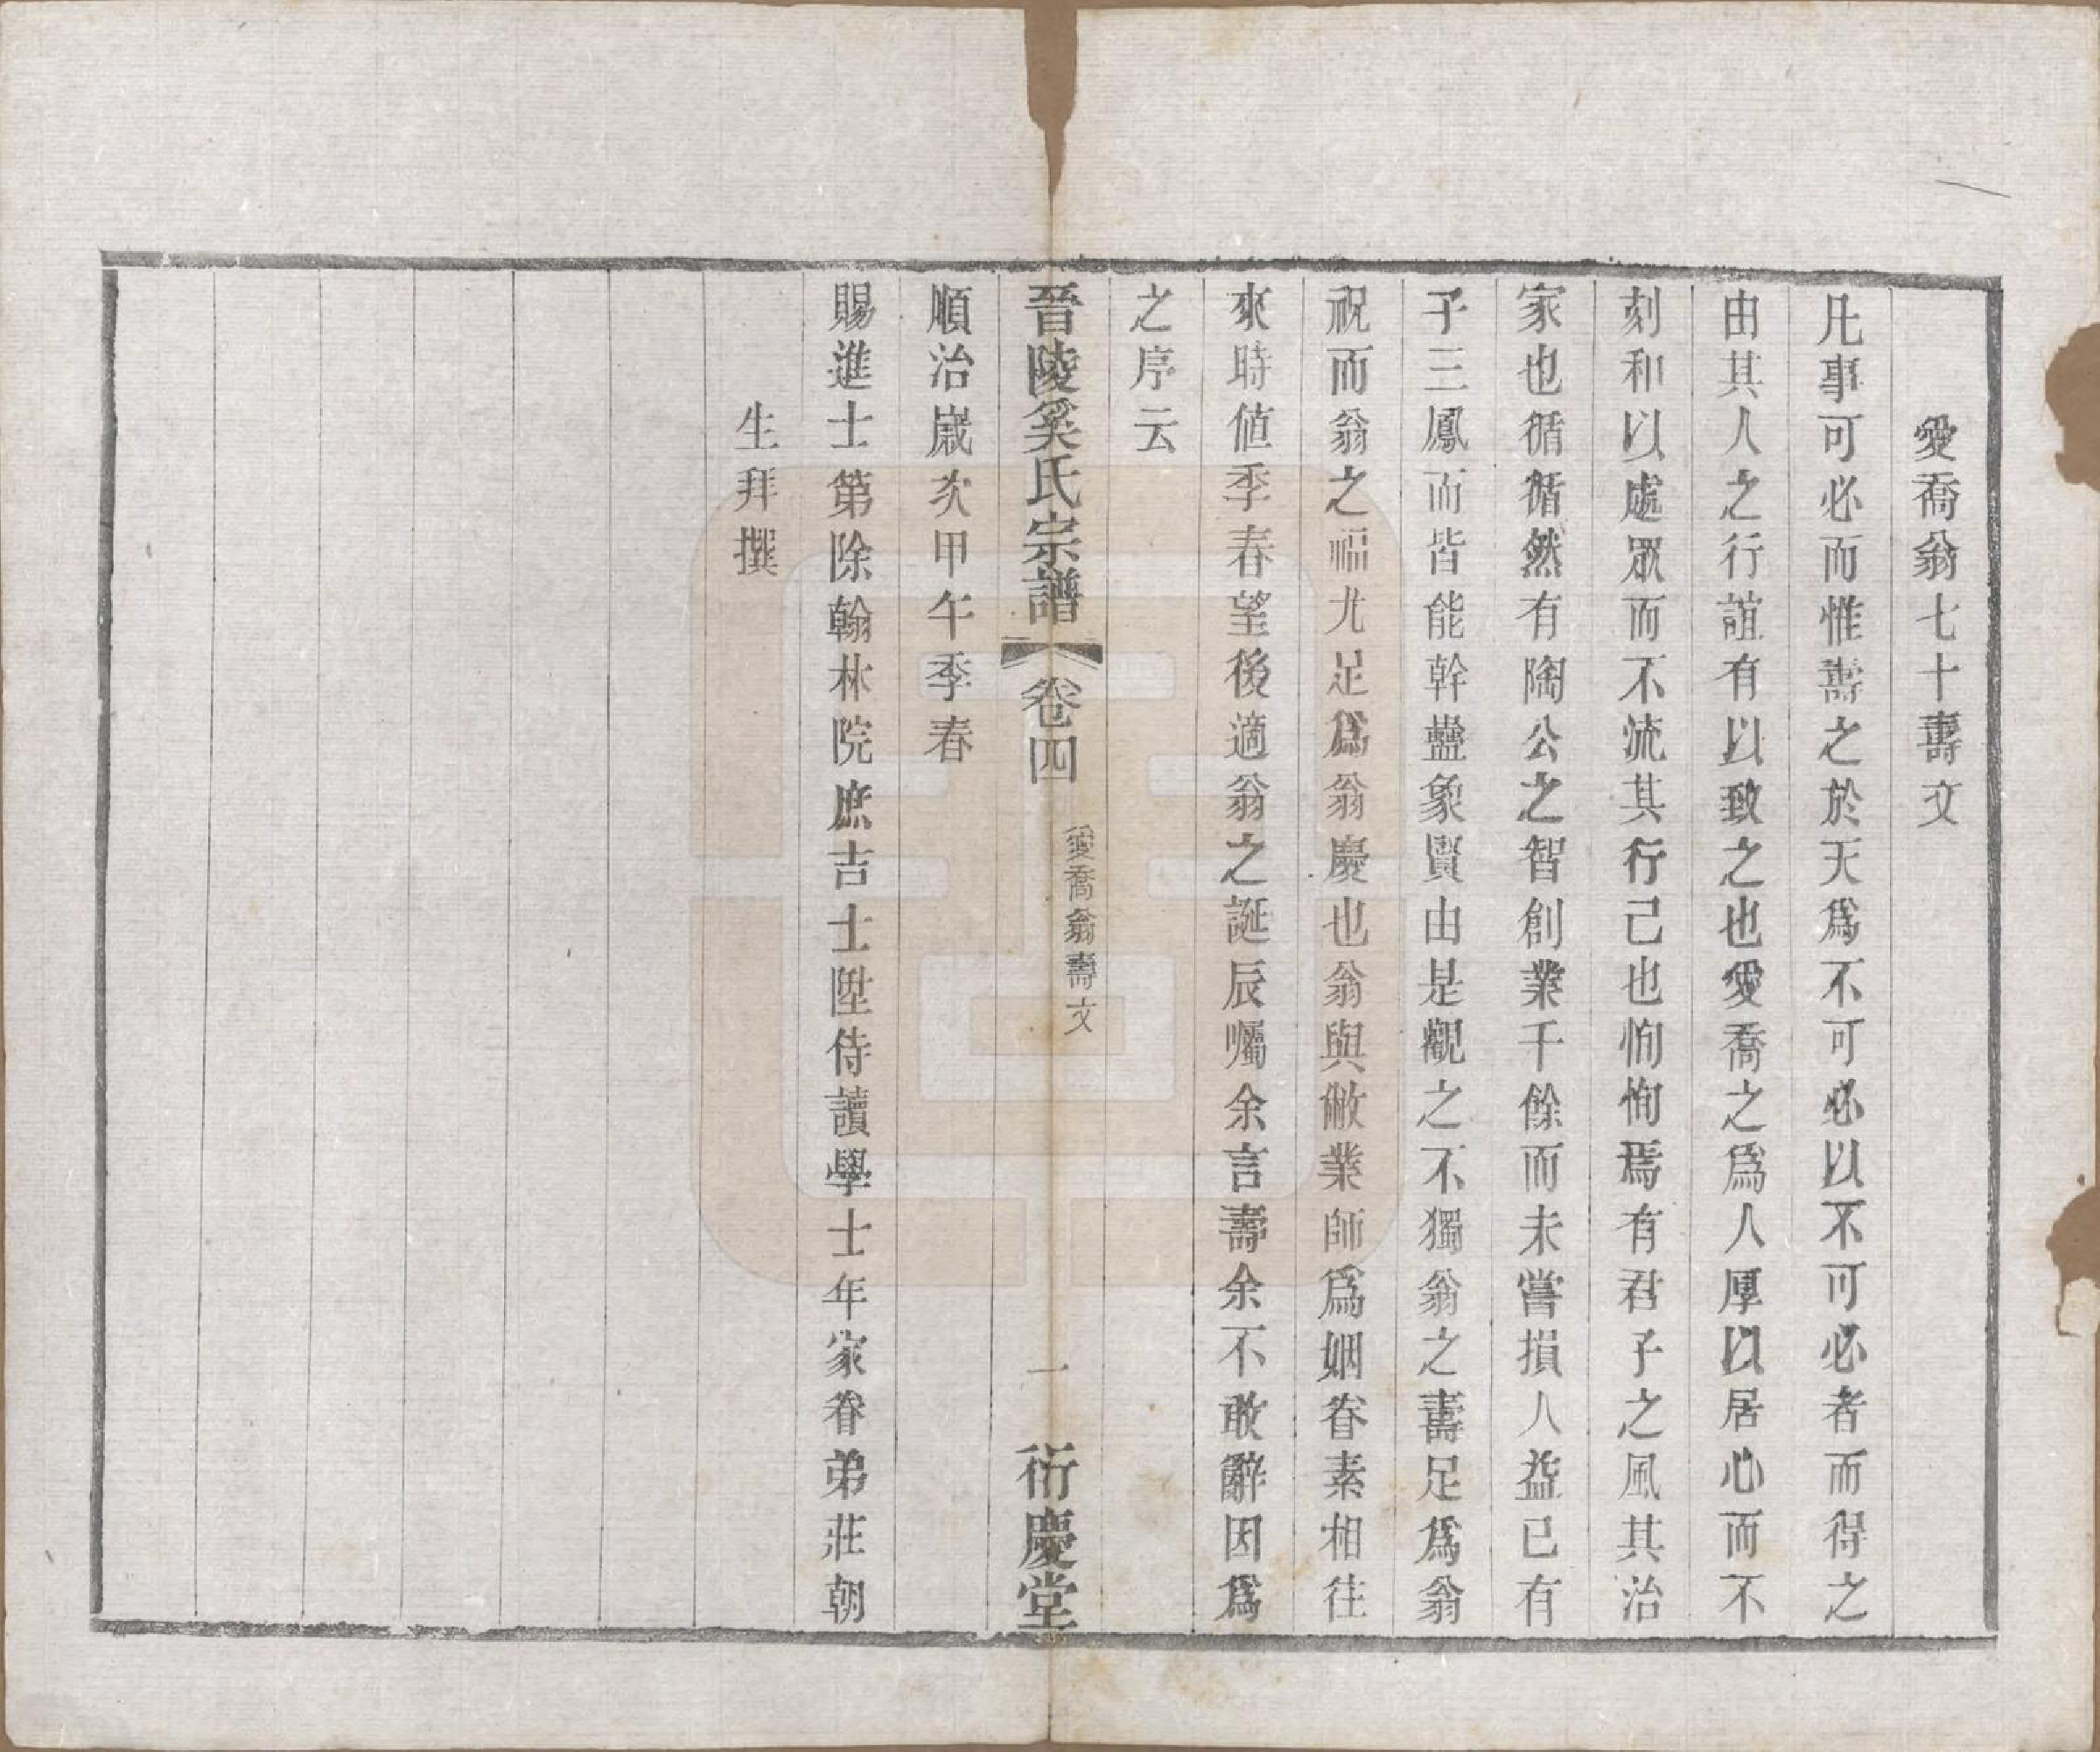 愛喬翁七十壽文
凡事可必而惟壽之於天爲不可必以不可必者而得之
由其人之行誼有以致之也愛喬之爲人厚以居心而不
刻和以處眾而不流其行己也恂恂焉有君子之風其治
家也循循然有陶公之智創業千餘而未嘗損人益已有
子三鳳而皆能幹蠱象賢由是觀之不獨翁之壽足爲翁
祝而翁之福尤足爲翁慶也翁與敝業師爲姻眷素相往
來時値季春望後適翁之誕辰囑余言壽余不敢辭因爲
之序云
晉陵奚氏宗譜 卷四 愛喬翁壽文 一 衍慶堂
順治歲次甲午季春
賜進士第除翰林院庶吉士陞侍讀學士年家眷弟莊朝
生拜撰